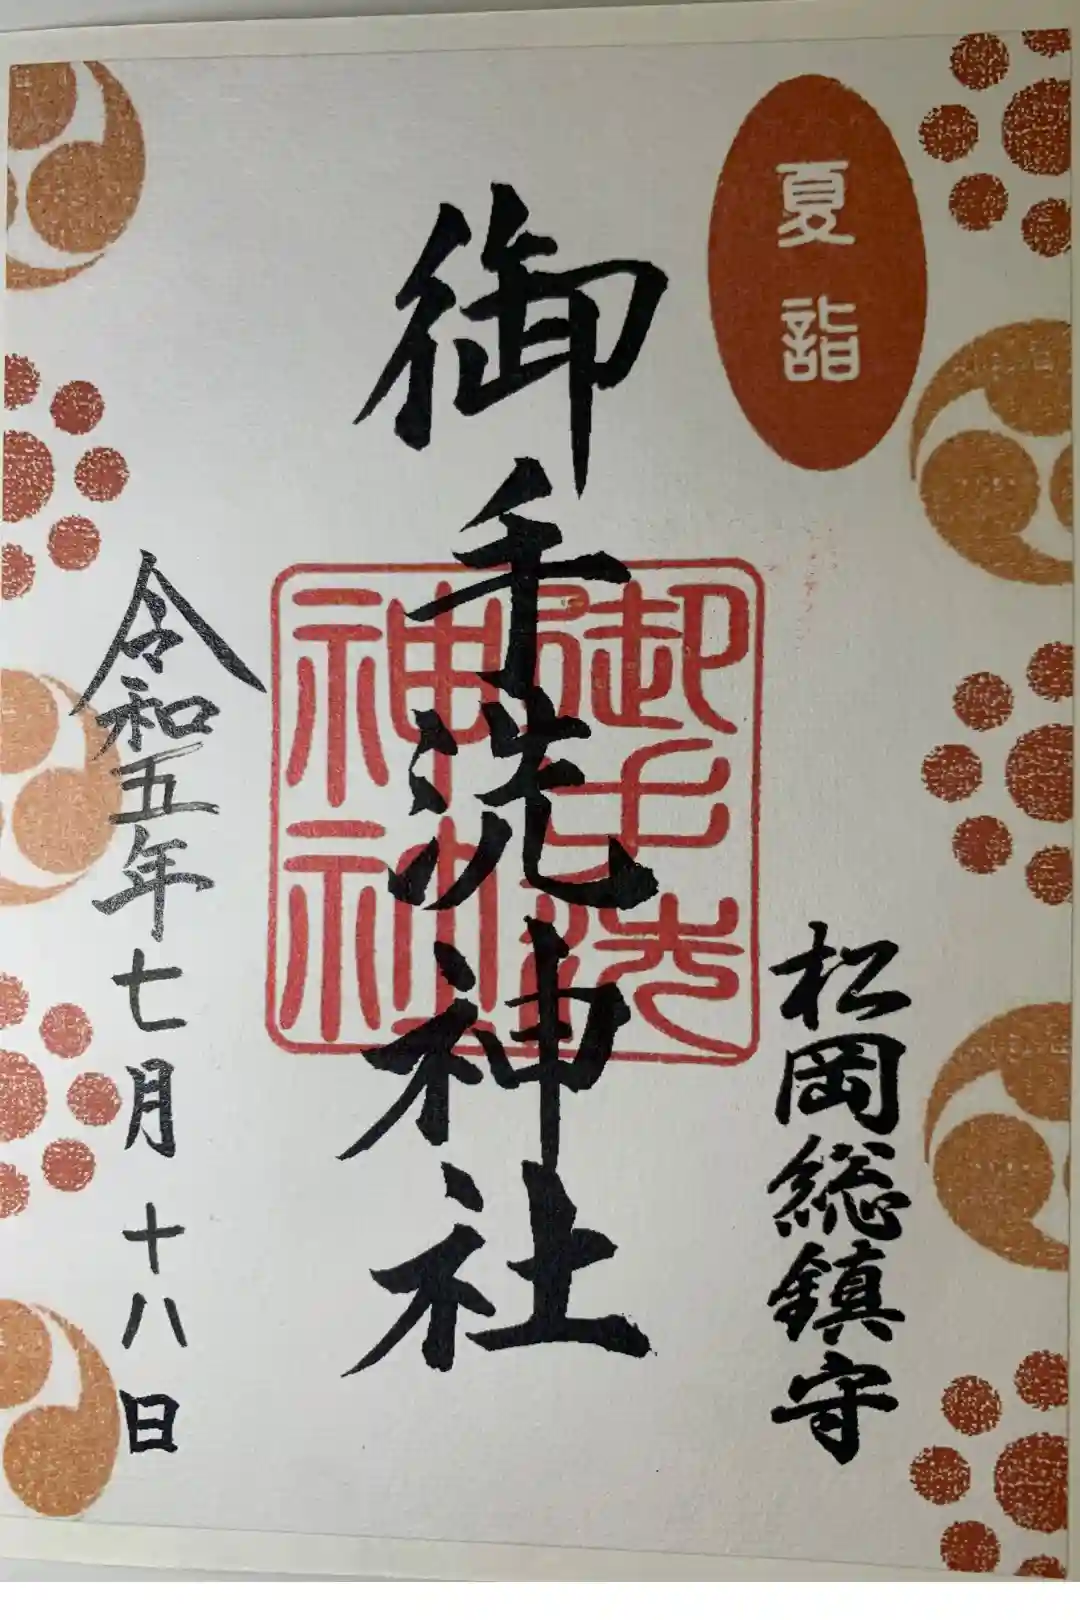 夏詣
松岡総鎮守
御手洗神社
御手洗
神社
令和五年七月十八日